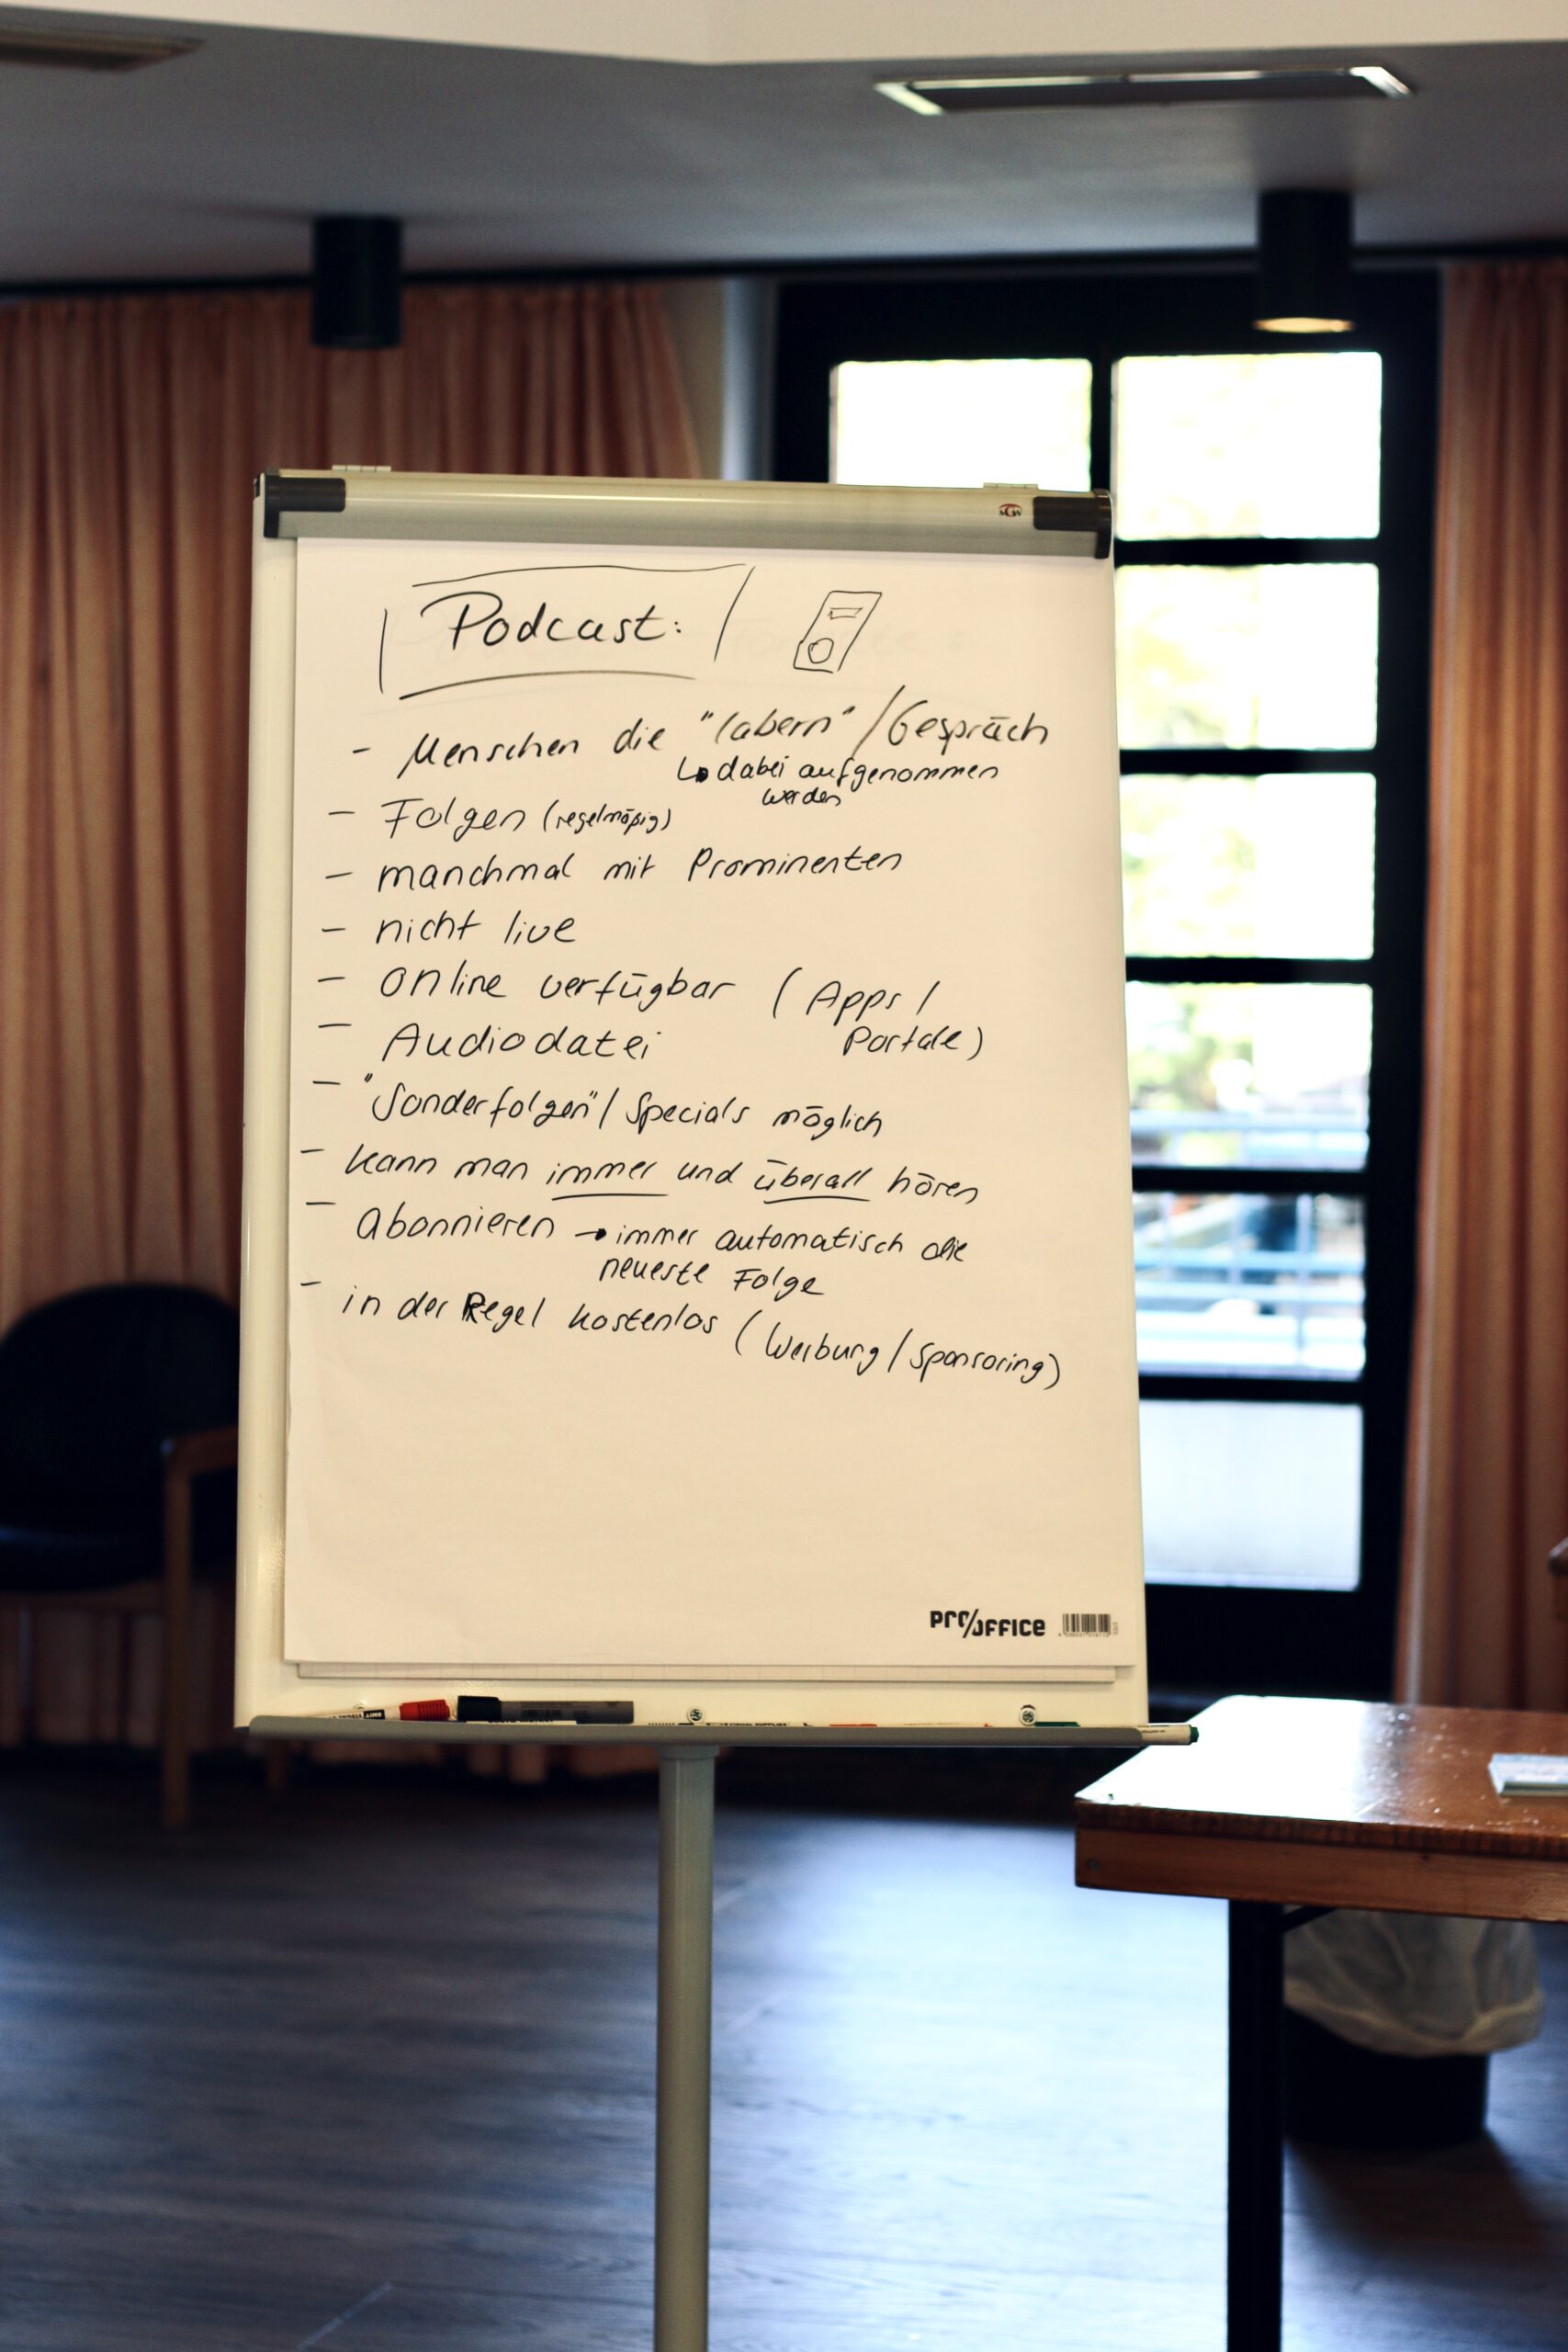 Podcast:
- Menschen die "labern" / Gespräch
↳ dabei aufgenommen
werden
- Folgen (regelmäßig)
- manchmal mit Prominenten
- nicht live
- online verfügbar ( Apps /
Portale)
- Audiodatei
- "Sonderfolgen" / Specials möglich
- kann man immer und überall hören
- Abonnieren → immer automatisch die
neueste Folge
- in der Regel kostenlos ( Werbung / Sponsoring)
PRO/OFFICE